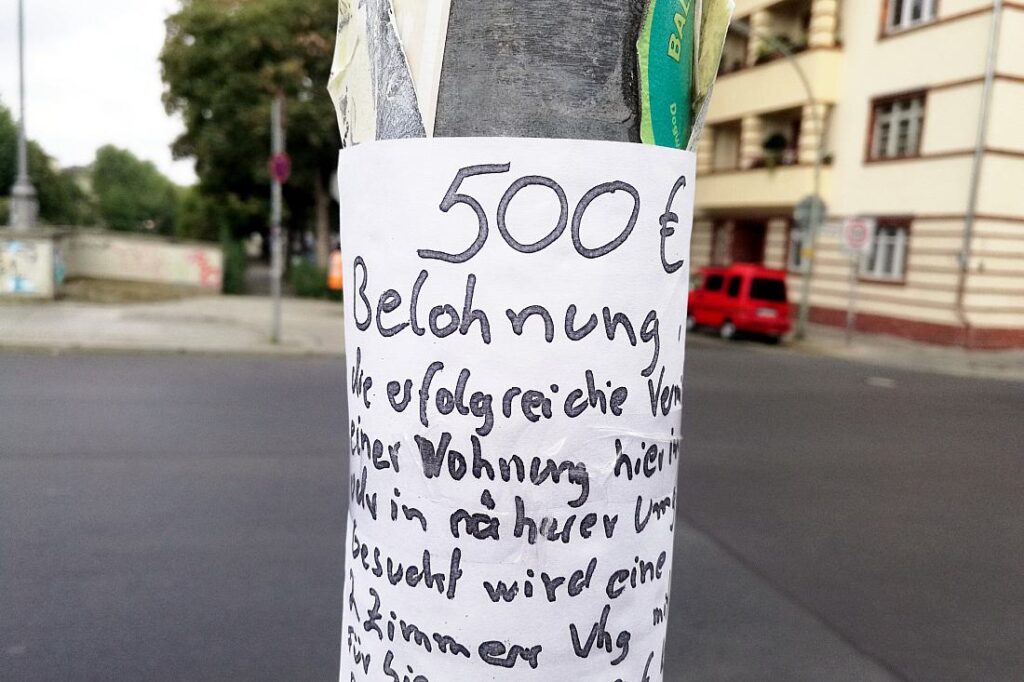 BAL
500 €
Belohnung
die erfolgreiche Verm
einer Wohnung hier in
oder in näherer Umg
Gesucht wird eine
2 Zimmer Whg mi
Für bis